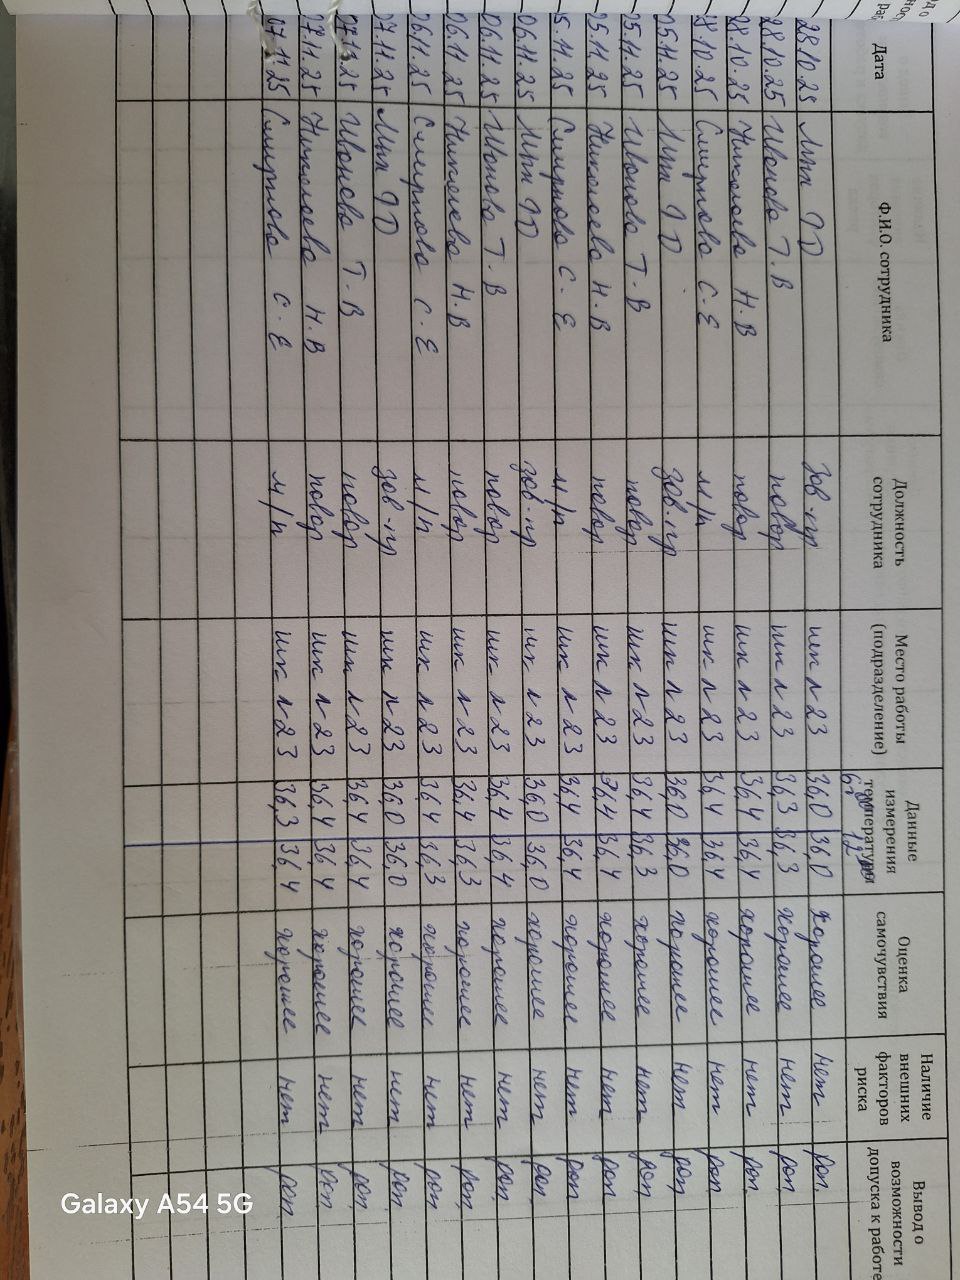 Дата Ф.И.О. сотрудника Должность сотрудника Место работы (подразделение) Данные измерения температуры Оценка самочувствия Наличие внешних факторов риска Вывод о возможности допуска к работе
28.10.25 зав.пр шк л 23 36,0 36,0 хорошее нет
28.10.25 Иванова Т.В повар шк л 23 36,3 36,3 хорошее нет
28.10.25 Николаева Н.В повар шк л 23 36,4 36,4 хорошее нет
28.10.25 Смирнова С.Е м/п шк л 23 36,4 36,4 хорошее нет
05.11.25 зав.пр шк л 23 36,0 36,0 хорошее нет
05.11.25 Иванова Т.В повар шк л 23 36,4 36,3 хорошее нет
05.11.25 Николаева Н.В повар шк л 23 36,4 хорошее нет
5.11.25 Смирнова С.Е м/п шк л 23 36,4 36,4 хорошее нет
06.11.25 зав.пр шк л 23 36,0 36,0 хорошее нет
06.11.25 Иванова Т.В повар шк л 23 36,4 36,4 хорошее нет
06.11.25 Николаева Н.В повар шк л 23 36,4 36,3 хорошее нет
06.11.25 Смирнова С.Е м/п шк л 23 36,4 36,3 хорошее нет
07.11.25 зав.пр шк л 23 36,0 36,0 хорошее нет
Иванова Т.В повар шк л 23 36,4 36,4 хорошее нет
07.11.25 Николаева Н.В повар шк л 23 36,4 36,4 хорошее нет
07.11.25 Смирнова С.Е м/п шк л 23 36,3 36,4 хорошее нет
Galaxy A54 5G